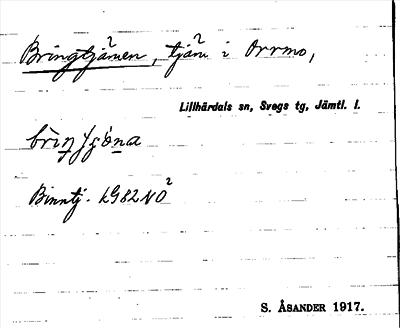 Bringtjärnen, tjärn i Orrmo,
Lillhärdals sn, Svegs tg, Jämtl. l.
Binntj. LG82NO²
S. ÅSANDER 1917.